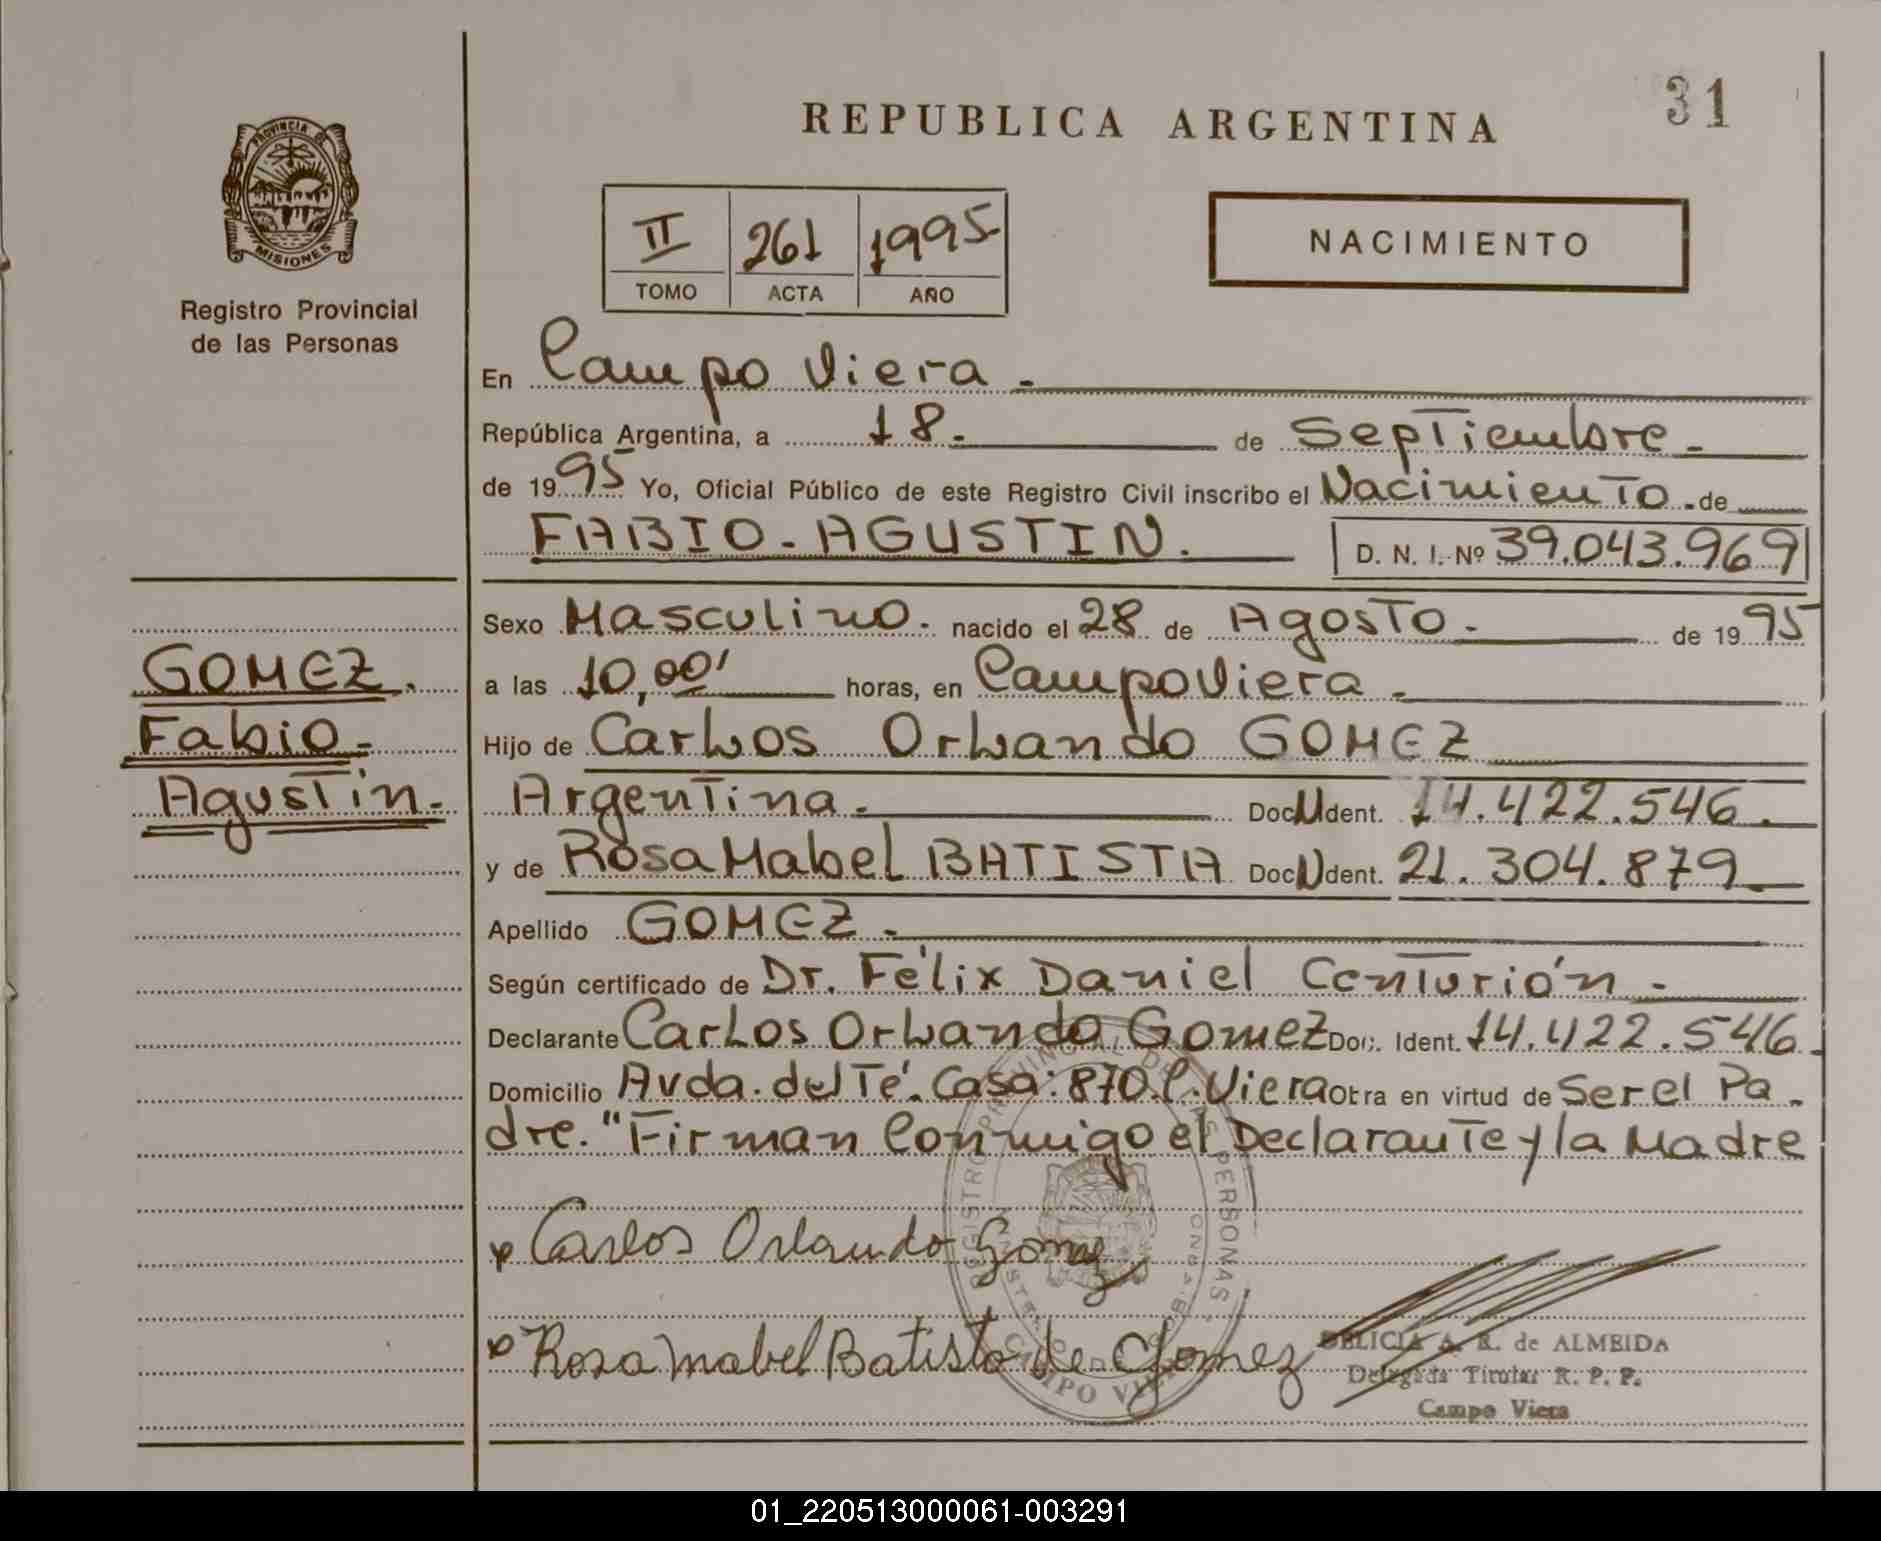 31
REPUBLICA ARGENTINA
PROVINCIA DE
MISIONES
Registro Provincial
de las Personas
II 261 1995
TOMO ACTA AÑO
NACIMIENTO
En Campo Viera.
República Argentina, a 18. de Septiembre.
de 1995 Yo, Oficial Público de este Registro Civil inscribo el Nacimiento. de
FABIO-AGUSTIN. D. N. I. Nº 39.043.969
Sexo Masculino. nacido el 28 de Agosto. de 1995
GOMEZ.
Fabio-
Agustin.
a las 10,00' horas, en Campo Viera.
Hijo de Carlos Orlando GOMEZ
Argentina. Doc N Ident. 14.422.546.
y de Rosa Mabel BATISTA Doc N Ident. 21.304.879
Apellido GOMEZ.
Según certificado de Dr. Félix Daniel Centurión.
Declarante Carlos Orlando Gomez Doc. Ident. 14.422.546.
Domicilio Avda. del Té. Casa: 870. C. Viera Obra en virtud de Ser el Pa-
dre. "Firman Conmigo el Declarante y la Madre
Carlos Orlando Gomez
Rosa Mabel Batista de Gomez
REGISTRO PROVINCIAL DE LAS PERSONAS
CAMPO VIERA
DELICIA A. R. de ALMEIDA
Delegada Titular R. P. P.
Campo Viera
01_220513000061-003291